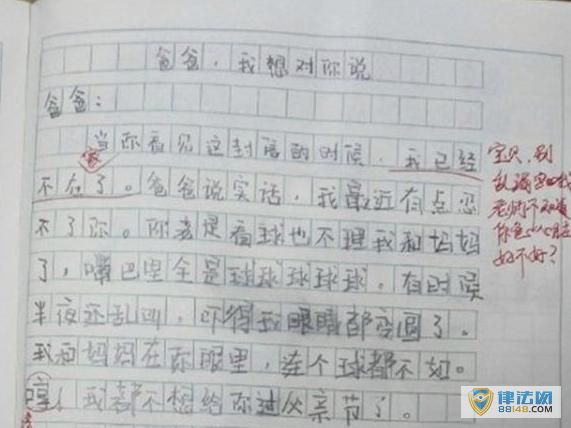 爸爸，我想对你说
爸爸：
当你看见这封信的时候，我已经
不在了。爸爸说实话，我最近有点忍
家
不了你。你老是看球也不理我和妈妈
了，嘴巴里全是球球球球球。有时候
半夜还乱叫，吓得我眼睛都变圆了。
我和妈妈在你眼里，连个球都不如。
哼！我都不想给你过父亲节了。
宝贝，别
老师不知道
好不好？
律法网
88148.com